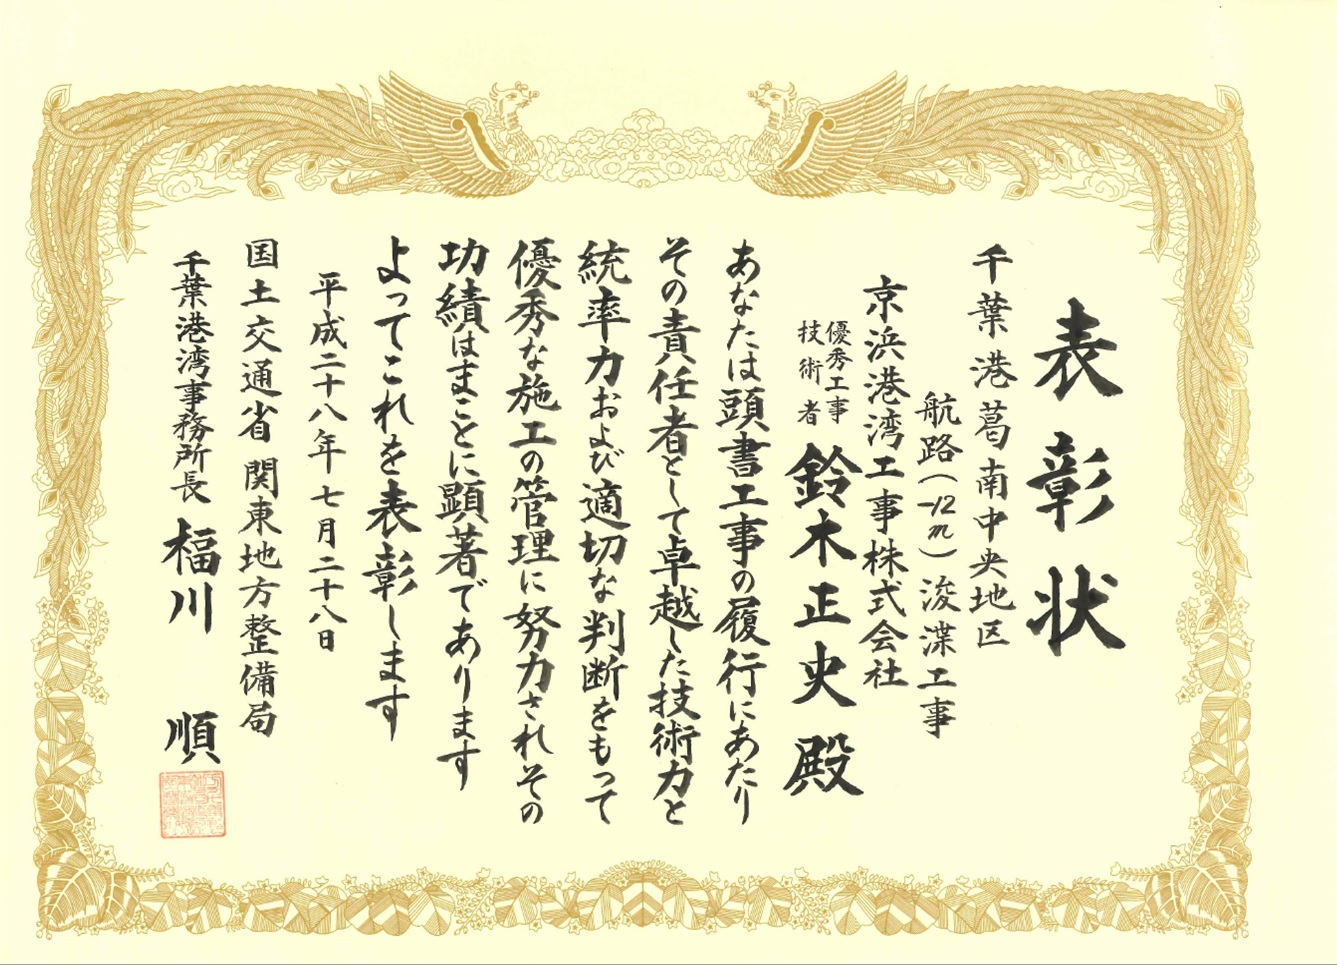 表彰状
千葉港葛南中央地区
航路(-12m)浚渫工事
京浜港湾工事株式会社
優秀工事
技術者
鈴木正史殿
あなたは頭書工事の履行にあたり
その責任者として卓越した技術力と
統率力および適切な判断をもって
優秀な施工の管理に努力されその
功績はまことに顕著であります
よってこれを表彰します
平成二十八年七月二十八日
国土交通省 関東地方整備局
千葉港湾事務所長 福川 順